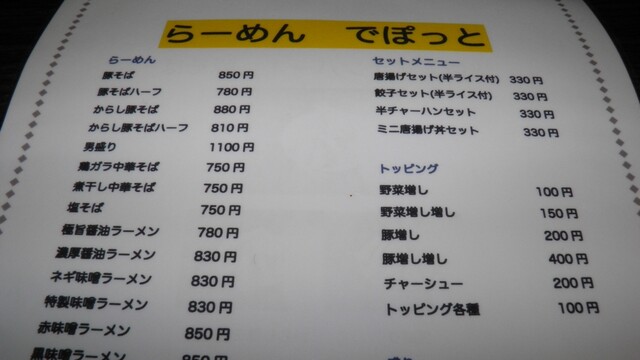 らーめん　でぽっと
らーめん
豚そば 850円
豚そばハーフ 780円
からし豚そば 880円
からし豚そばハーフ 810円
男盛り 1100円
鶏ガラ中華そば 750円
煮干し中華そば 750円
塩そば 750円
極旨醤油ラーメン 780円
濃厚醤油ラーメン 830円
ネギ味噌ラーメン 830円
特製味噌ラーメン 830円
赤味噌ラーメン 850円
黒味噌ラーメン 850円
セットメニュー
唐揚げセット(半ライス付) 330円
餃子セット(半ライス付) 330円
半チャーハンセット 330円
ミニ唐揚げ丼セット 330円
トッピング
野菜増し 100円
野菜増し増し 150円
豚増し 200円
豚増し増し 400円
チャーシュー 200円
トッピング各種 100円